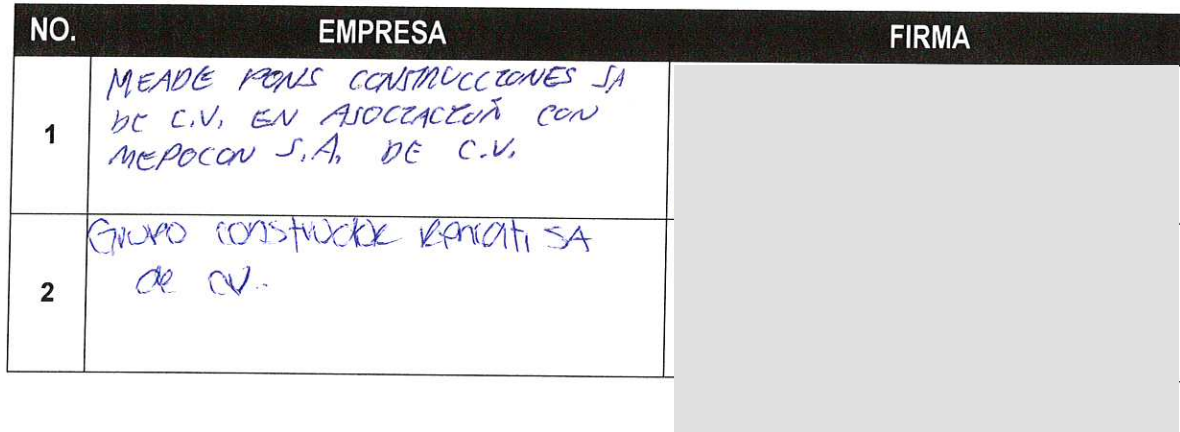 NO. EMPRESA FIRMA
1
MEADE PONS CONSTRUCCIONES SA
DE C.V. EN ASOCIACIÓN CON
MEPOCON S.A. DE C.V.
2
Grupo constructor SA
de CV.